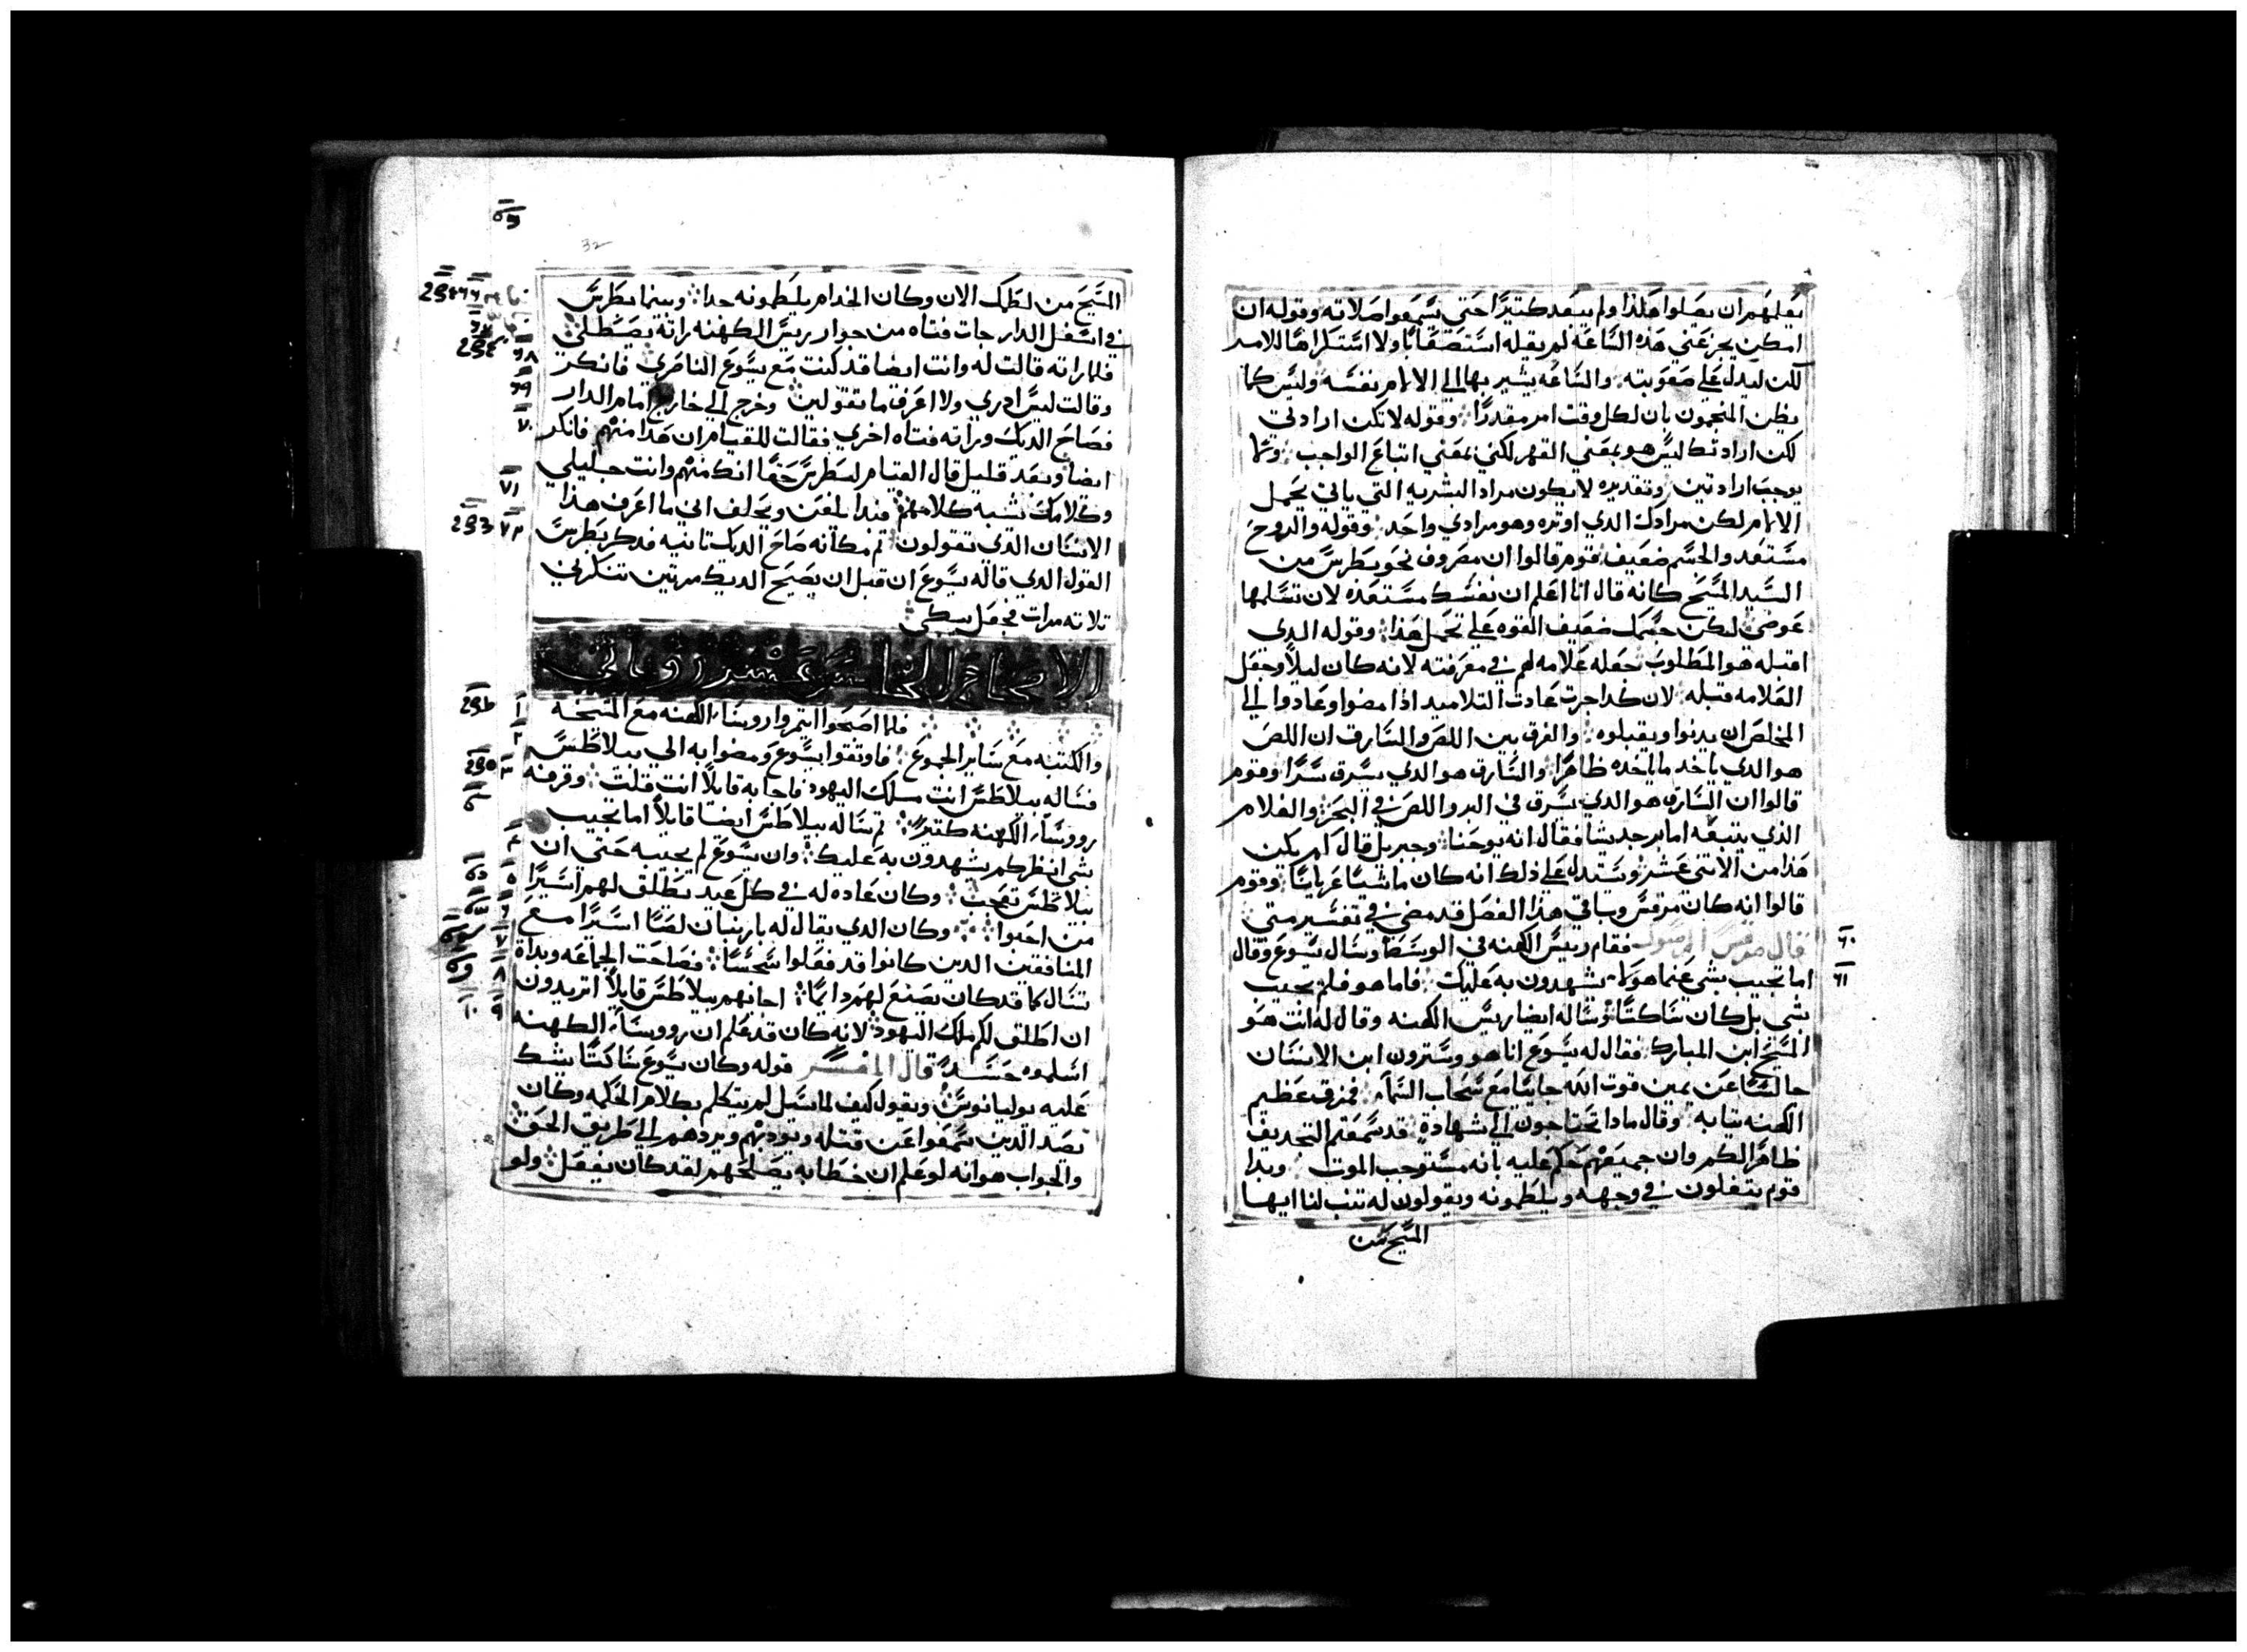 يعلمهم ان يصلوا هكذا ولم يبعد كتيرًا حتى يسمعوا صلاته وقوله ان
امكن يجز عني هذه الساعه لم يقله استصعابًا ولا استكراهًا للامر
لكن ليدل على صعوبته والساعه يشير بها الى الالام نفسه وليس كما
يظن المنجمون بان لكل وقت امر مقدرًا وقوله لا تكن ارادتي
لكن ارادتك ليس هو بمعني القهر لكني بمعني اتباع الواجب
يوجب ارادتين وتقديره لا يكون مراد البشريه التي يابي تحمل
الالام لكن مرادك الدي اوتره وهو مرادي واحد وقوله والروح
مستعد والجسم ضعيف قوم قالوا ان مصروف نحو بطرس من
السيد المسيح كانه قال انا اعلم ان نفسك مستعده لان تسلمها
عوضي لكن جسمك ضعيف القوه على تحمل هذا وقوله الدي
اقبله هو المطلوب جعله علامه لهم في معرفته لانه كان ليلاً وجعل
العلامه قبله لان كدا جرت عادت التلاميد اذا مضوا وعادوا الي
المخلص ان يدنوا ويقبلوه والفرق بين اللص والسارق ان اللص
هو الدي ياخد ما ياخده ظاهرًا والسارق هو الدي يسرق سرًا وقوم
قالوا ان السارق هو الدي يسرق في البر واللص في البحر والغلام
الذي يتبعه اما برجد بشا فقال انه يوحنا وجبريل قال لم يكن
هذا من الاتني عشر ونستدل على ذلك انه كان ماشيًا عريانًا وقوم
قالوا انه كان مرقس وباقي هذا الفصل قد مضى في تفسير متى
قال مرقس الرسول فقام رييس الكهنه في الوسط وسال يسوع وقال
٦٠
اما تجيب بشي عنما هولا يشهدون به عليك فاما هو فلم يجيب
٦١
بشي بل كان ساكتًا وساله ايضا رييس الكهنه وقال له انت هو
المسيح ابن المبارك فقال له يسوع انا هو وسترون ابن الانسان
جالسًا عن يمين قوت الله جايًا مع سحاب السماء فمزق عظيم
الكهنه تيابه وقال مادا تحتاجون الي شهادة قد سمعتم التجديف
ظاهرًا لكم وان جميعهم حكم عليه بانه مستوجب الموت وبدا
قوم يتفلون في وجهه ويلطمونه ويقولون له تنب لنا ايها
المسيح من
32
المسيح من لطمك الان وكان الخدام يلطمونه جدا وبينما بطرس
في اسفل الدار جات فتاه من جوار رييس الكهنه راته يصطلي
فلما راته قالت له وانت ايضا قد كنت مع يسوع الناصري فانكر
٦٨
وقالت ليس ادري ولا اعرف ما تقولين وخرج الى خارج امام الدار
٦٩
فصاح الديك وراته فتاه اخري فقالت للقيام ان هدا منهم فانكر
٧٠
ايضا وبعد قليل قال القيام لبطرس حقًا انك منهم وانت جليلي
وكلامك يشبه كلامهم فبدا يلعن ويحلف اني ما اعرف هذا
٧١
الانسان الذي تقولون تم مكانه صاح الديك تانيه فدكر بطرس
٧٢
القول الدي قاله يسوع ان قبل ان يصيح الديك مرتين تنكرني
تلاته مرات فجعل يبكي
الاصحاح الخامس عشر
فلما اصبحوا ايتمروا رووساء الكهنه مع المشيخه
١
والكتبه مع ساير الجموع فاوتقوا يسوع ومضوا به الي بيلاطس
٢
فساله بيلاطس انت ملك اليهود فاجابه قايلاً انت قلت وقرفه
٣
رووساء الكهنه كتيرًا تم ساله بيلاطس ايضا قايلاً اما تجيب
٤
بشي انظر كم يشهدون به عليك وان يسوع لم يجيبه حتى ان
٥
بيلاطس تعجب وكان عاده له في كل عيد يطلق لهم اسيرًا
٦
من احبوا وكان الدي يقال له بارنبان لصًا اسرًا مع
٧
المنافقين الدين كانوا قد فعلوا سجسًا فصاحت الجماعه وبداة
٨
تسال كما قد كان يصنع لهم دايمًا اجابهم بيلاطس قايلاً اتريدون
٩
ان اطلق لكم ملك اليهود لانه كان قد علم ان رووساء الكهنه
١٠
اسلموه حسدًا قال المفسر قوله وكان يسوع ساكتًا يشك
عليه يوليانوس ويقول كيف لما سيل لم يتكلم بكلام الحكمه وكان
يصد الدين سمعوا عن قتله ويودبهم ويردهم الى طريق الحق
والجواب هو انه لو علم ان خطابه يصلحهم لقد كان يفعل ولو